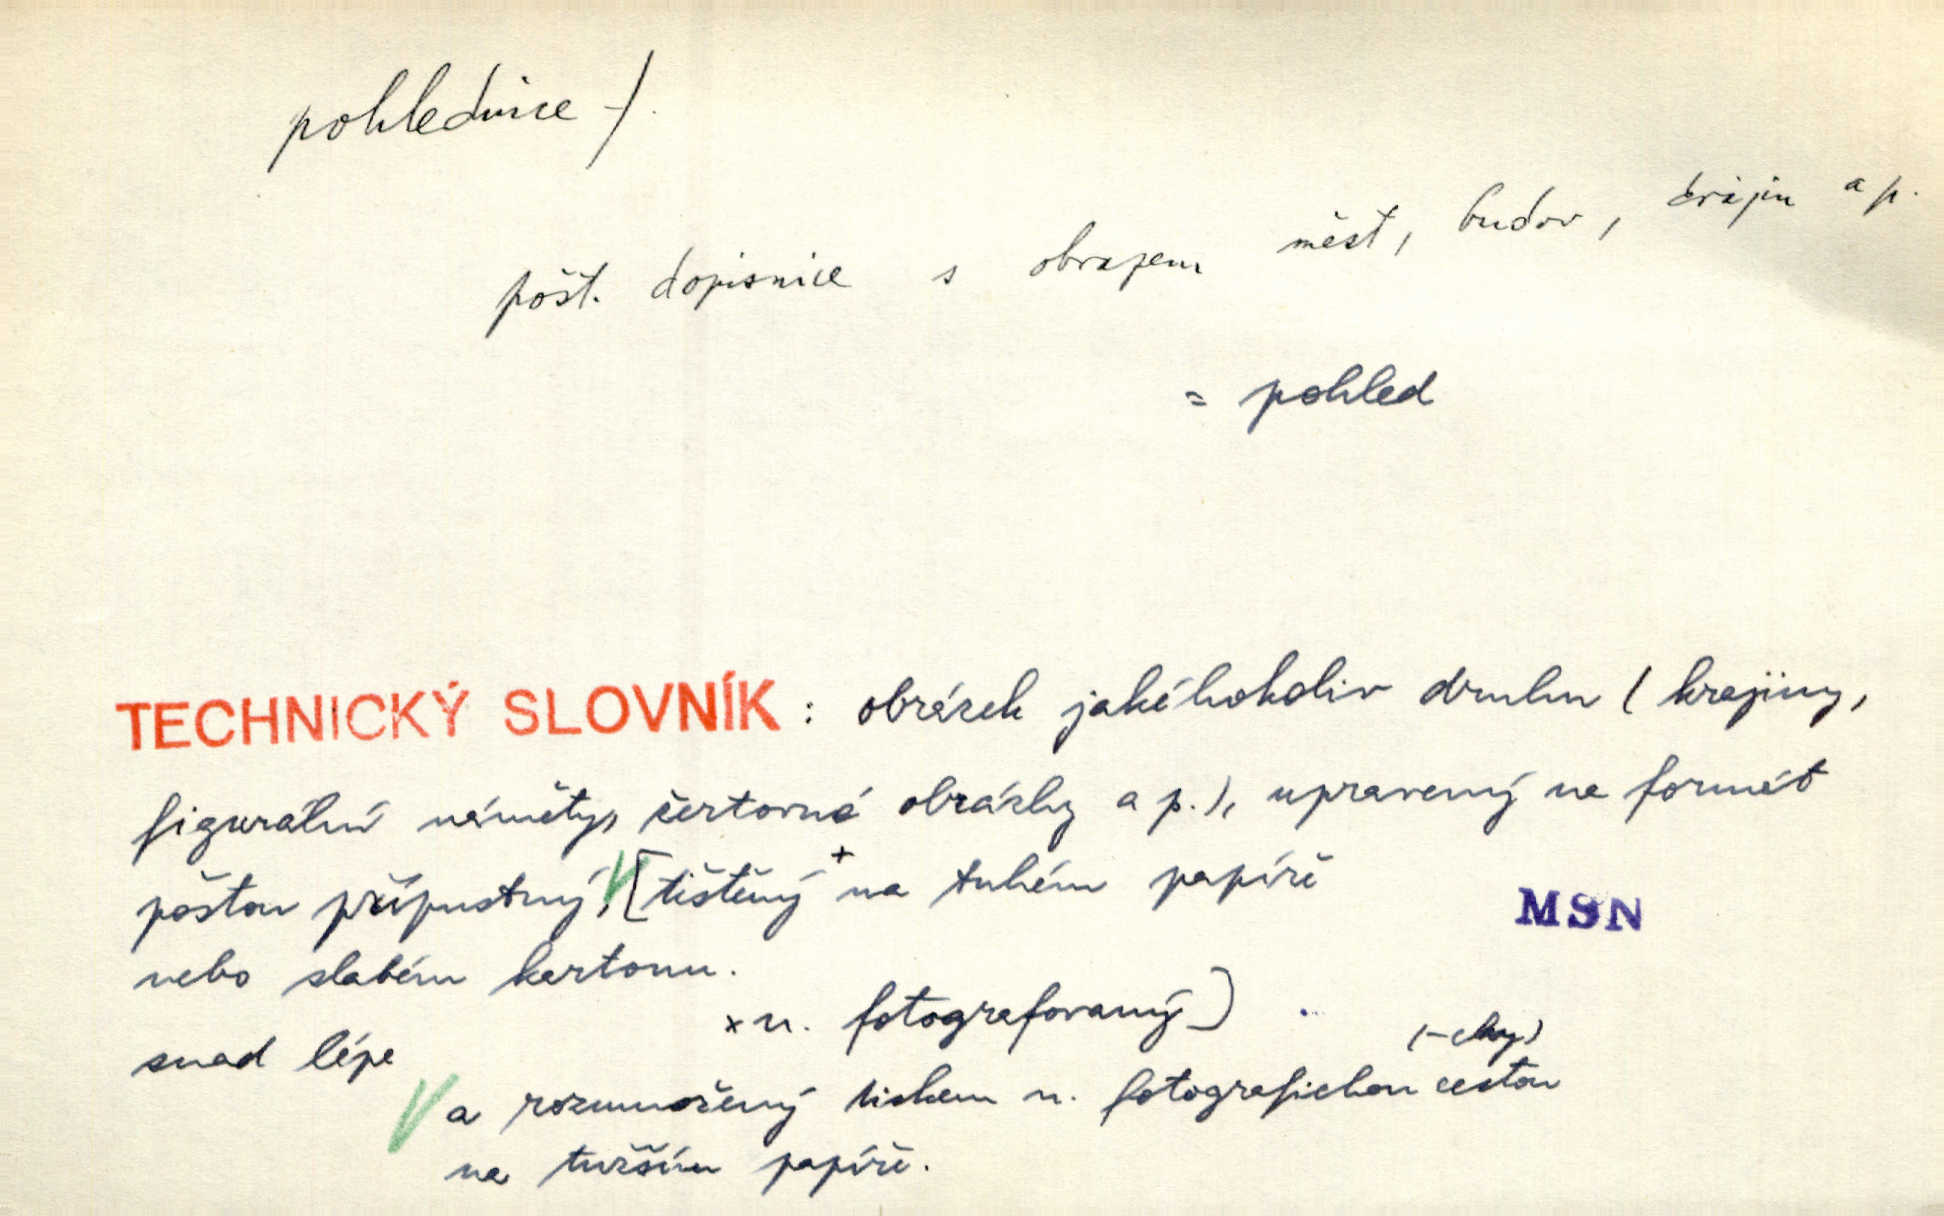 pohlednice f.
pošt. dopisnice s obrazem měst, budov, krajin a p.
= pohled
TECHNICKÝ SLOVNÍK : obrázek jakéhokoliv druhu ( krajiny,
figurální náměty, žertovné obrázky a p.), upravený na formát
poštou přípustný, [tištěný + na tuhém papíře
MSN
nebo slabém kartonu.
x n. fotografovaný]
snad lépe
(-cky)
a rozmnožený tiskem n. fotografickou cestou
na tužším papíře.